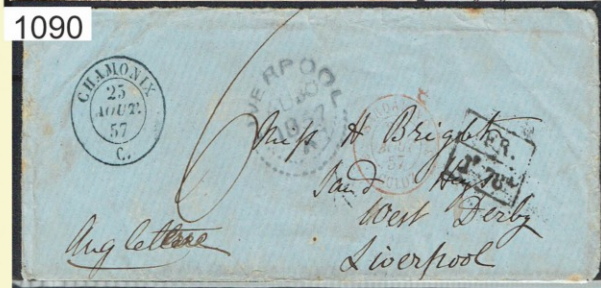 1090
CHAMONIX
25
AOUT.
57
C.
LIVERPOOL
1857
6
57
FR.
Miss H Bright
Sand
West Derby
Liverpool
Angleterre